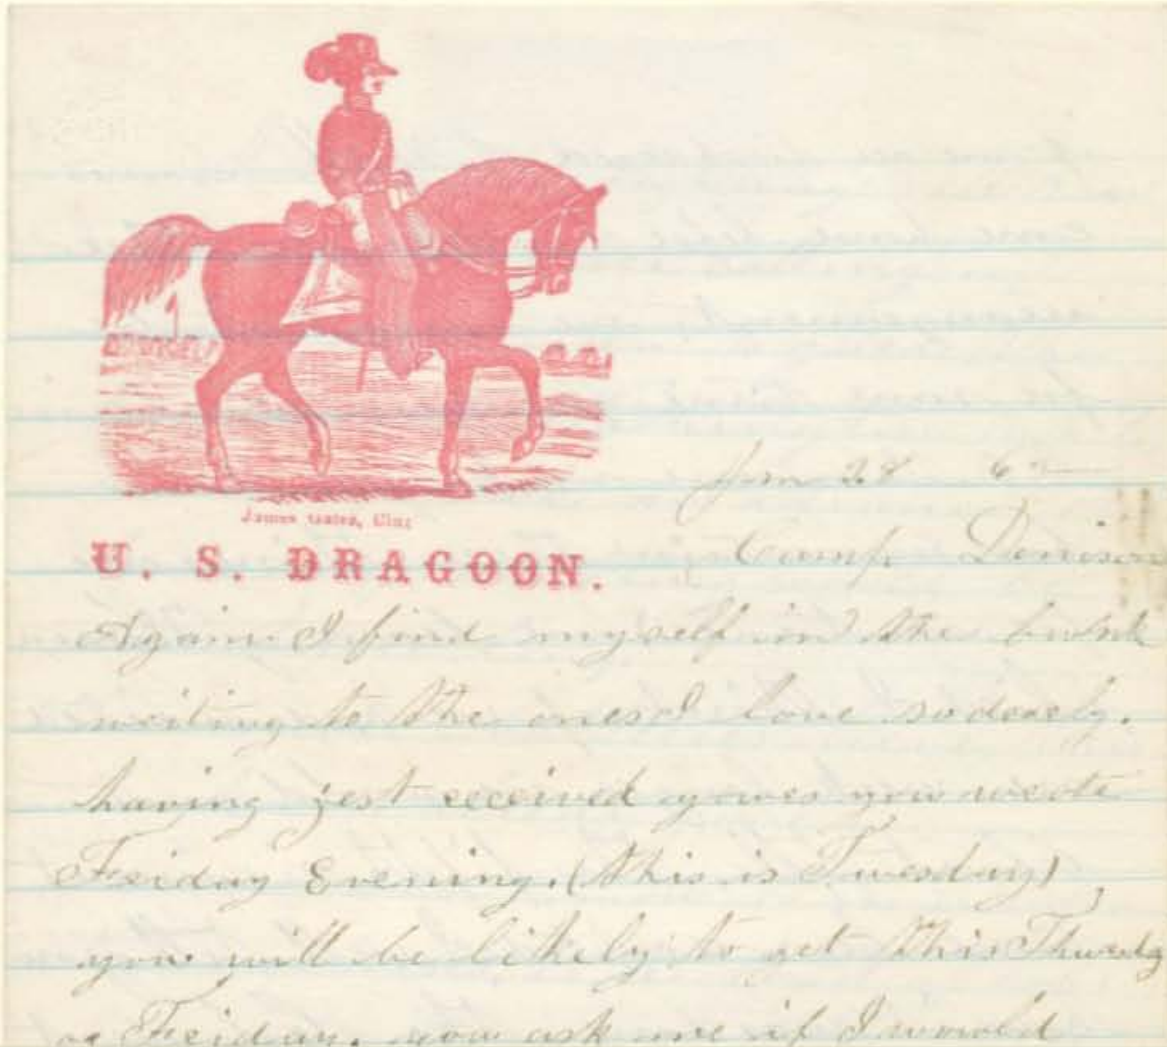 James Gates, Cin;
U. S. DRAGOON.
Jan 28 62
Camp Denison
Again I find myself in the bunk
writing to the ones I love so dearly.
having jest received youres you wrote
Friday Evening. (this is Tuesday)
you will be likely to get this Thursdy
or Friday. you ask me if I would